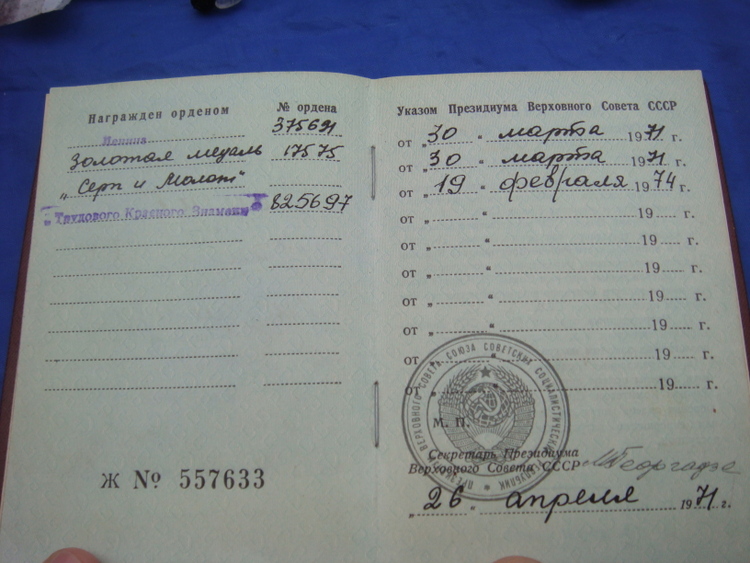 Награжден орденом № ордена
Ленина 375691
Золотая медаль 17575
„Серп и Молот"
„Трудового Красного Знамени" 825697
Ж № 557633
Указом Президиума Верховного Совета СССР
от „30" марта 1971 г.
от „30" марта 1971 г.
от „19" февраля 1974 г.
от „ " 19 г.
от „ " 19 г.
от „ " 19 г.
от „ " 19 г.
от „ " 19 г.
от „ " 19 г.
от „ " 19 г.
М. П.
Секретарь Президиума
Верховного Совета СССР М Георгадзе
„26" апреля 1971 г.